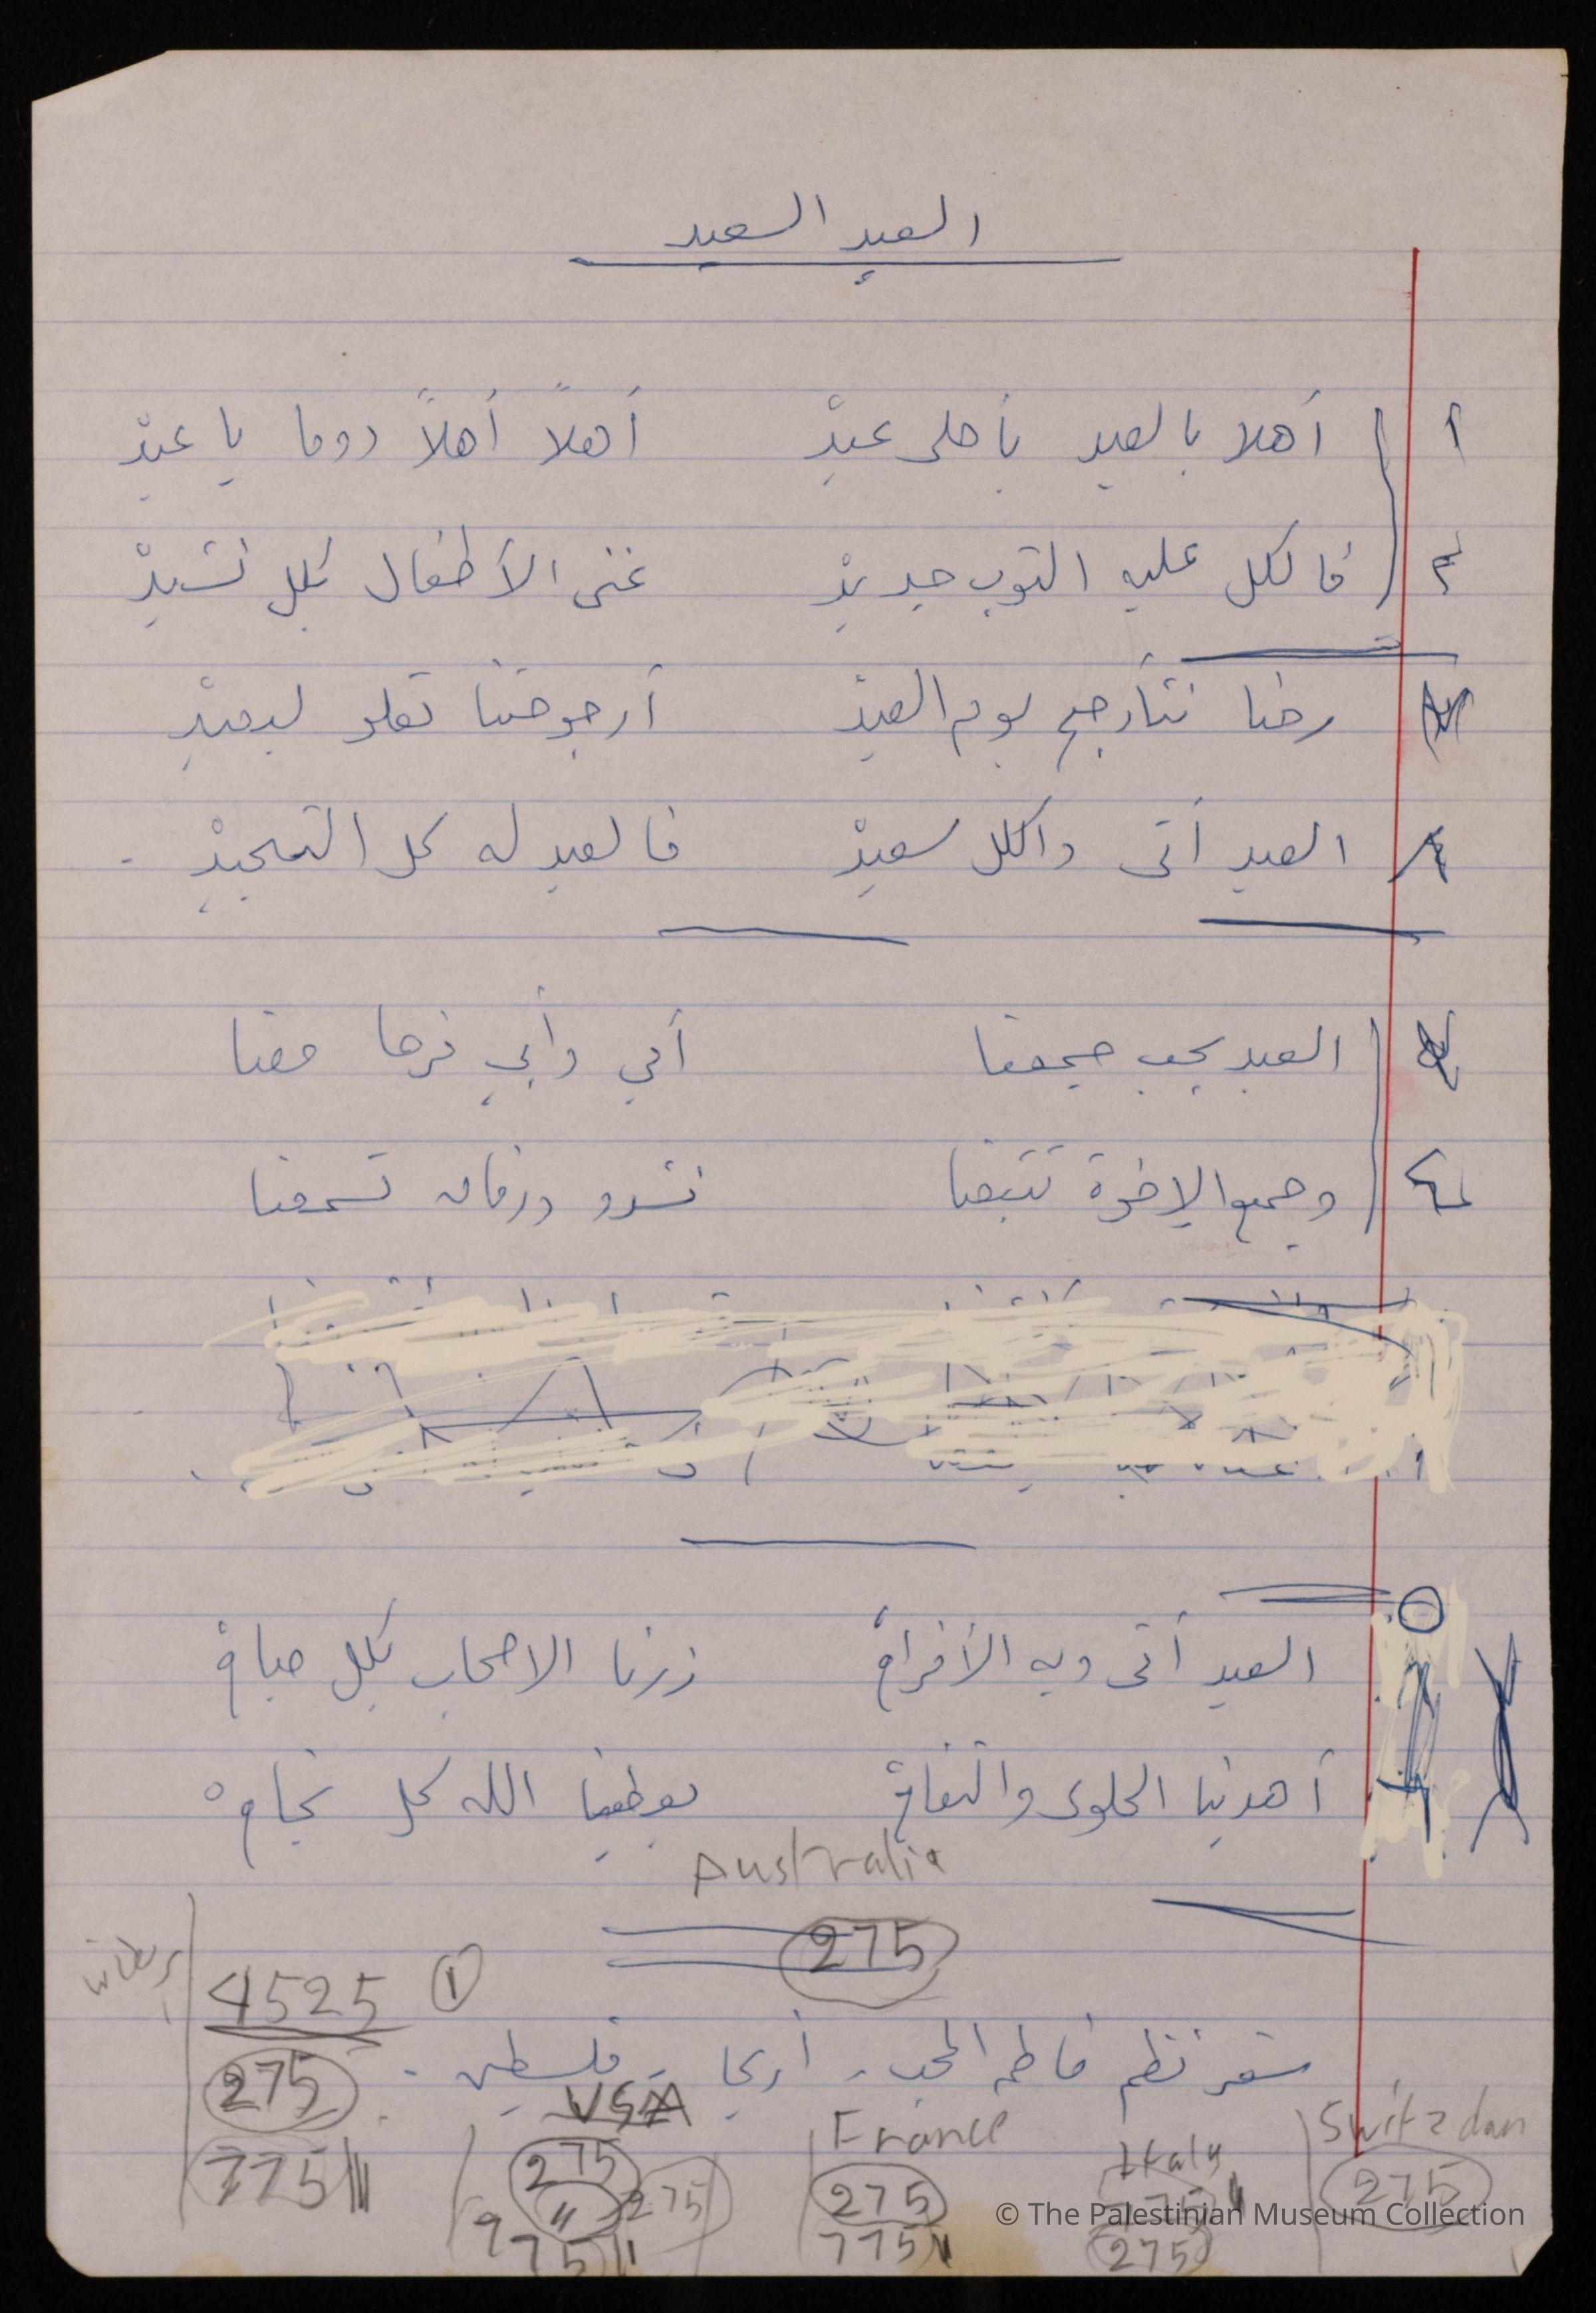 العيد السعيد
أ أهلا بالعيد بأحلى عيدْ أهلاً أهلاً دوما يا عيدْ
٢ فالكل عليه الثوب جديدْ غنى الأطفال بكل نشيدْ
رحنا نتأرجح يوم العيدْ أرجوحتنا تعلو لبعيدْ
العيد أتى والكل سعيدْ فالعيد له كل التمجيدْ .
العيد بحب يجمعنا أمي وأبي فرحا معنا
٤ وجميع الإخوة تتبعنا نشدو ورفاق تسمعنا
العيد أتى وبه الأفراحْ زرنا الاصحاب بكل صباحْ
٥
أهدينا الحلوى والتفاحْ يعطينا الله كل نجاحْ
Australia
275
4525 ①
شعر نظم فاطمه المحب - أريحا - فلسطين .
275
USA
France
Italy
775
275
275
275
275
775
775
275
© The Palestinian Museum Collection